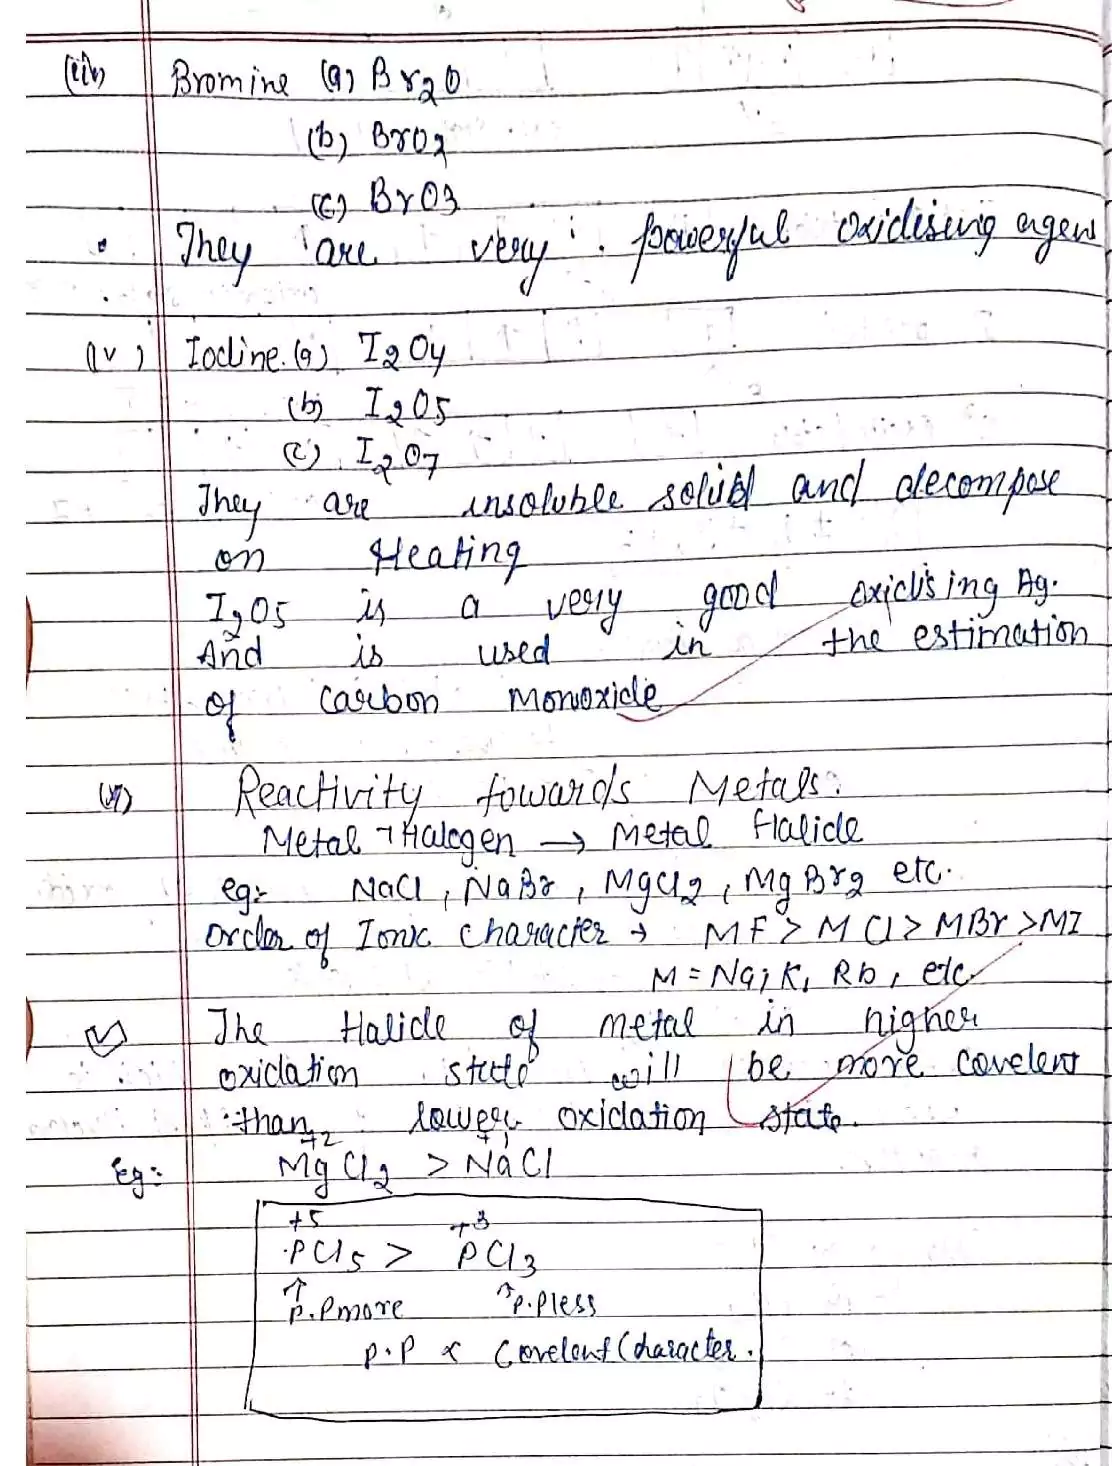 (iii) Bromine (a) Br2O
(b) BrO2
(c) BrO3
• They are very powerful oxidising agen
(iv) Iodine. (a) I2O4
(b) I2O5
(c) I2O7
They are insoluble solid and decompose
on Heating
I2O5 is a very good oxidising Ag.
And is used in the estimation
of carbon Monoxide
Reactivity towards Metals:
Metal + Halogen → Metal Halide
eg:- NaCl, NaBr, MgCl2, MgBr2 etc.
order of Ionic character → MF > MCl > MBr > MI
M = Na, K, Rb, etc
The Halide of metal in higher
oxidation state will be more covelent
than lower oxidation state.
+2 +1
Eg:- MgCl2 > NaCl
+5 +3
PCl5 > PCl3
↑ ↑
P.P more P.P less
P.P ∝ Covelent Character.